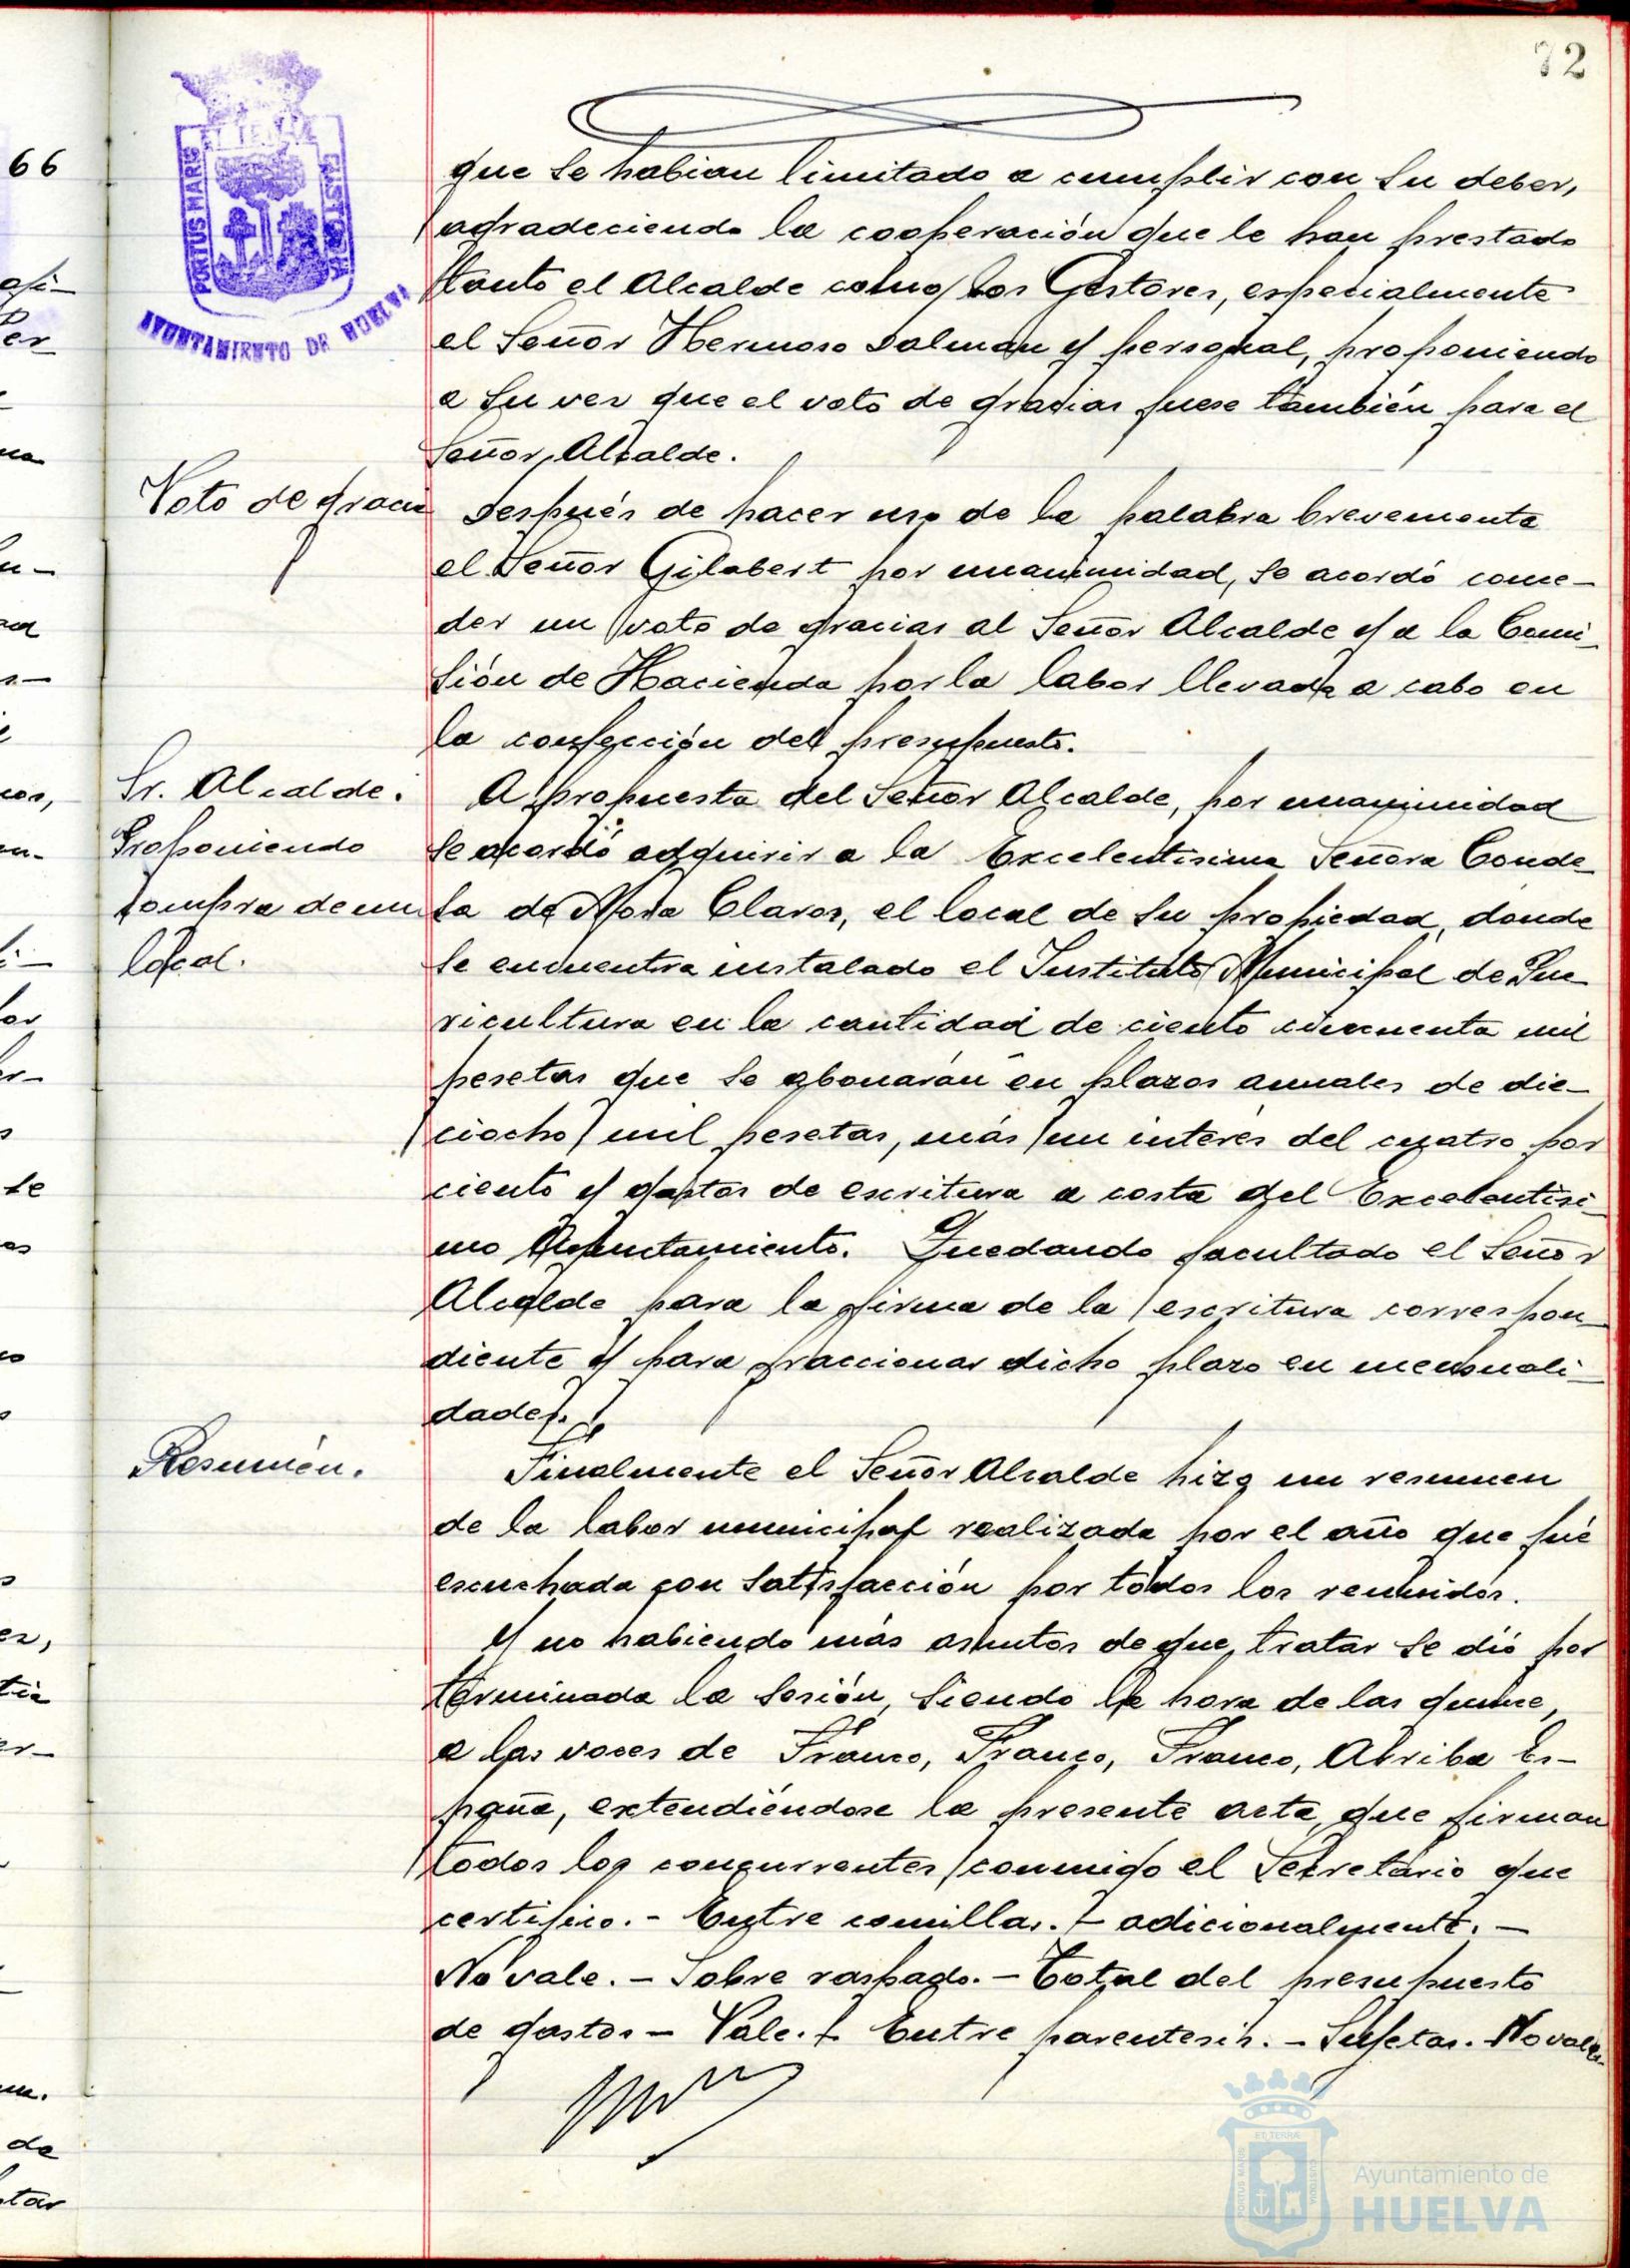 72
66
PORTUS MARIS
ET TERRAE
CUSTODIA
AYUNTAMIENTO DE HUELVA
que se habian limitado a cumplir con su deber,
agradeciendo la cooperación que le han prestado
tanto el Alcalde como los Gestores, especialmente
el Señor Hermoso Dalman y personal, proponiendo
a su vez que el voto de gracias fuese también para el
Señor Alcalde.
Voto de graci
Después de hacer uso de la palabra brevemente
el Señor Gilabert por unanimidad, se acordó conce-
der un voto de gracias al Señor Alcalde y a la Comi-
sión de Hacienda por la labor llevada a cabo en
la confección del presupuesto.
Sr. Alcalde.
Proponiendo
compra de un
local.
A propuesta del Señor Alcalde, por unanimidad
se acordó adquirir a la Excelentisima Señora Conde-
sa de Mora Claros, el local de su propiedad, donde
se encuentra instalado el Instituto Municipal de Pue-
ricultura en la cantidad de ciento cincuenta mil
pesetas que se abonarán en plazos anuales de die-
ciocho mil pesetas, más un interés del cuatro por
ciento y gastos de escritura a costa del Excelentisi-
mo Ayuntamiento. Quedando facultado el Señor
Alcalde para la firma de la escritura correspon-
diente y para fraccionar dicho plazo en mensuali-
dades.
Resumén.
Finalmente el Señor Alcalde hizo un resumen
de la labor municipal realizada por el año que fué
escuchada con satisfacción por todos los reunidos.
Y no habiendo más asuntos de que tratar se dió por
terminada la sesión, siendo la hora de las quince,
a las voces de Franco, Franco, Franco, Arriba Es-
paña, extendiéndose la presente acta que firman
todos los concurrentes conmigo el Secretario que
certifico. - Entre comillas. - adicionalmente. -
No vale. - Sobre raspado. - Total del presupuesto
de gastos - Vale. - Entre parentesis. - Sujetas. No vale.
ET TERRA
PORTUS MARIS
CUSTODIA
Ayuntamiento de
HUELVA